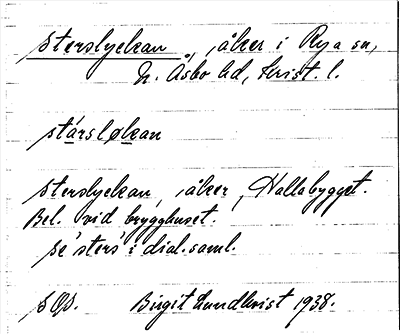 Sterslyckan, åker i Rya sn,
N. Åsbo hd, Krist. l.
stársløkan
Sterslyckan, åker, Hallabygget.
Bel. vid brygghuset.
Se 'sters' i dial.saml.
Birgit Lundkvist 1938.